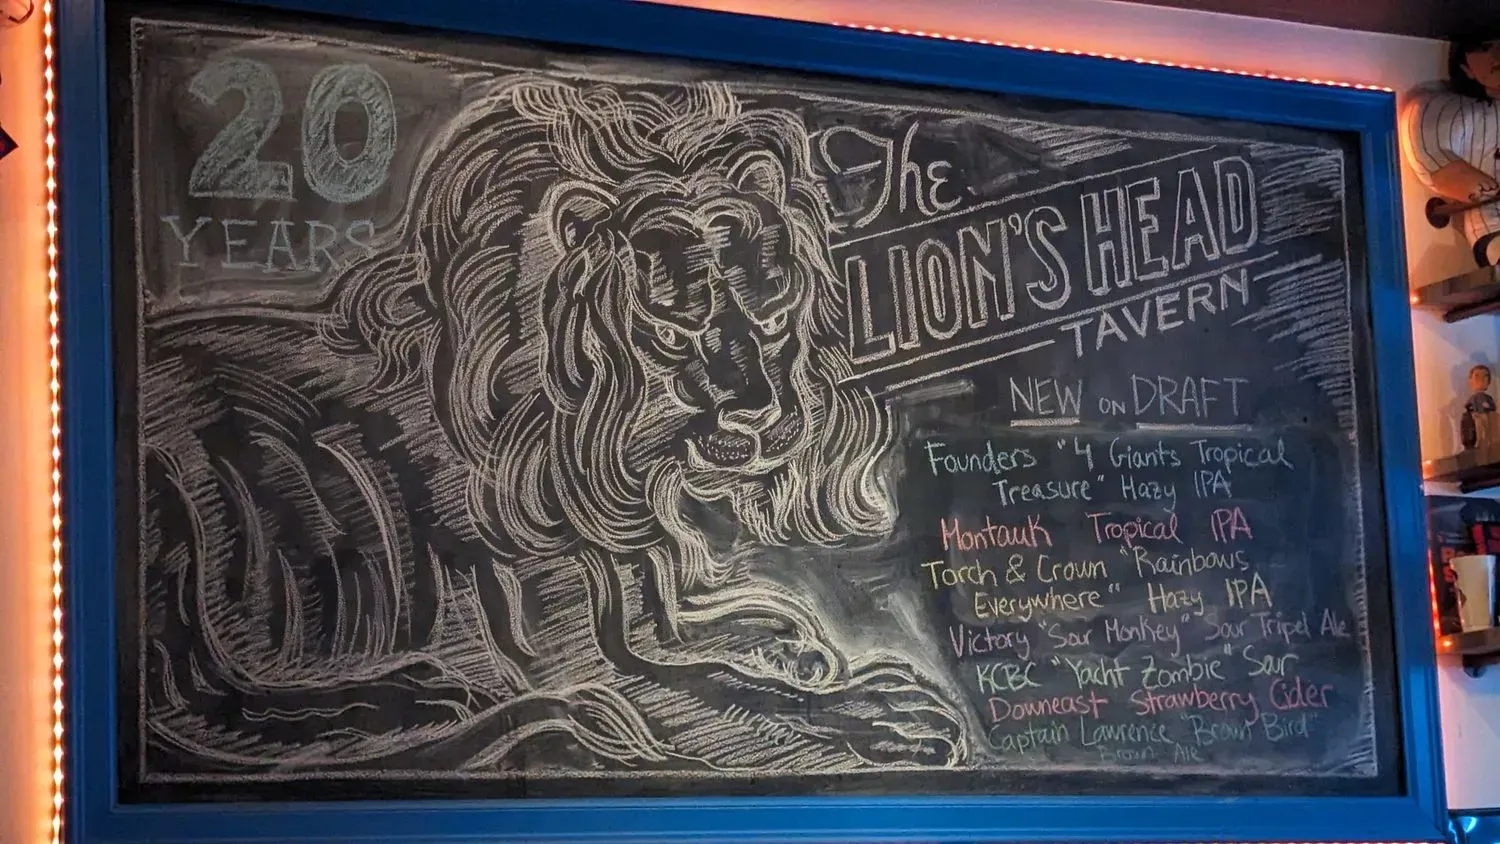 20
YEARS
The
LION'S HEAD
TAVERN
NEW ON DRAFT
Founders "4 Giants Tropical
Treasure" Hazy IPA
Montauk Tropical IPA
Torch & Crown "Rainbows
Everywhere" Hazy IPA
Victory "Sour Monkey" Sour Tripel Ale
KCBC "Yacht Zombie" Sour
Downeast Strawberry Cider
Captain Lawrence "Brown Bird"
Brown Ale